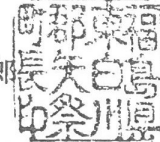 福島県
東白川
郡矢祭
町長印